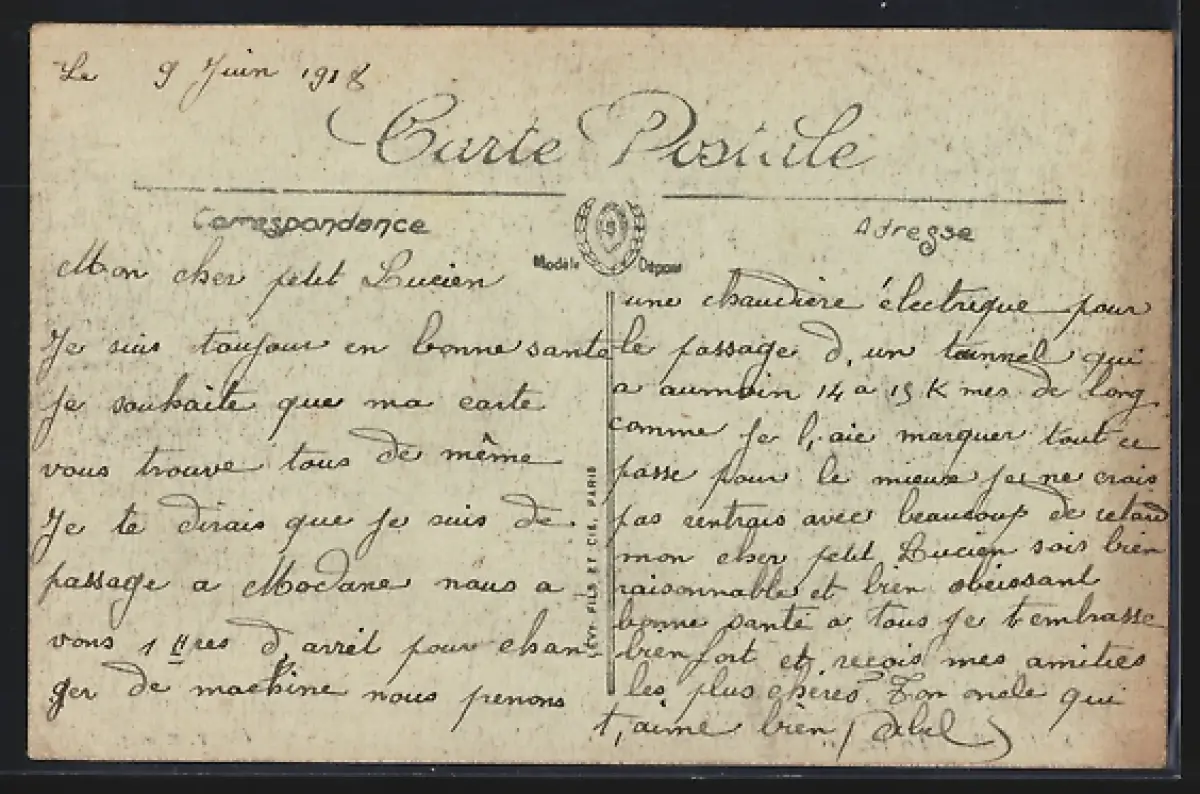 Le 9 Juin 1918
Carte Postale
Correspondance
Adresse
Modèle Déposé
Mon cher petit Lucien
Je suis toujour en bonne santé
je souhaite que ma carte
vous trouve tous de même
Je te dirais que je suis de
passage a Modane nous a
vons 1 Hres d, arrêt pour chan
ger de machine nous penons
LÉVY FILS ET CIE, PARIS
une chaudière électrique pour
le passage d, un tunnel qui
a aumoin 14 a 15 K mes de long
comme je l, aie marquer tout ce
passe pour le mieux je ne crois
pas rentrais avec beaucoup de retard
mon cher petit Lucien sois bien
raisonnable et bien obéissant
bonne santé a tous je t embrasse
bien fort et reçois mes amitiés
les plus chères Ton oncle qui
t, aime bien (Abel)